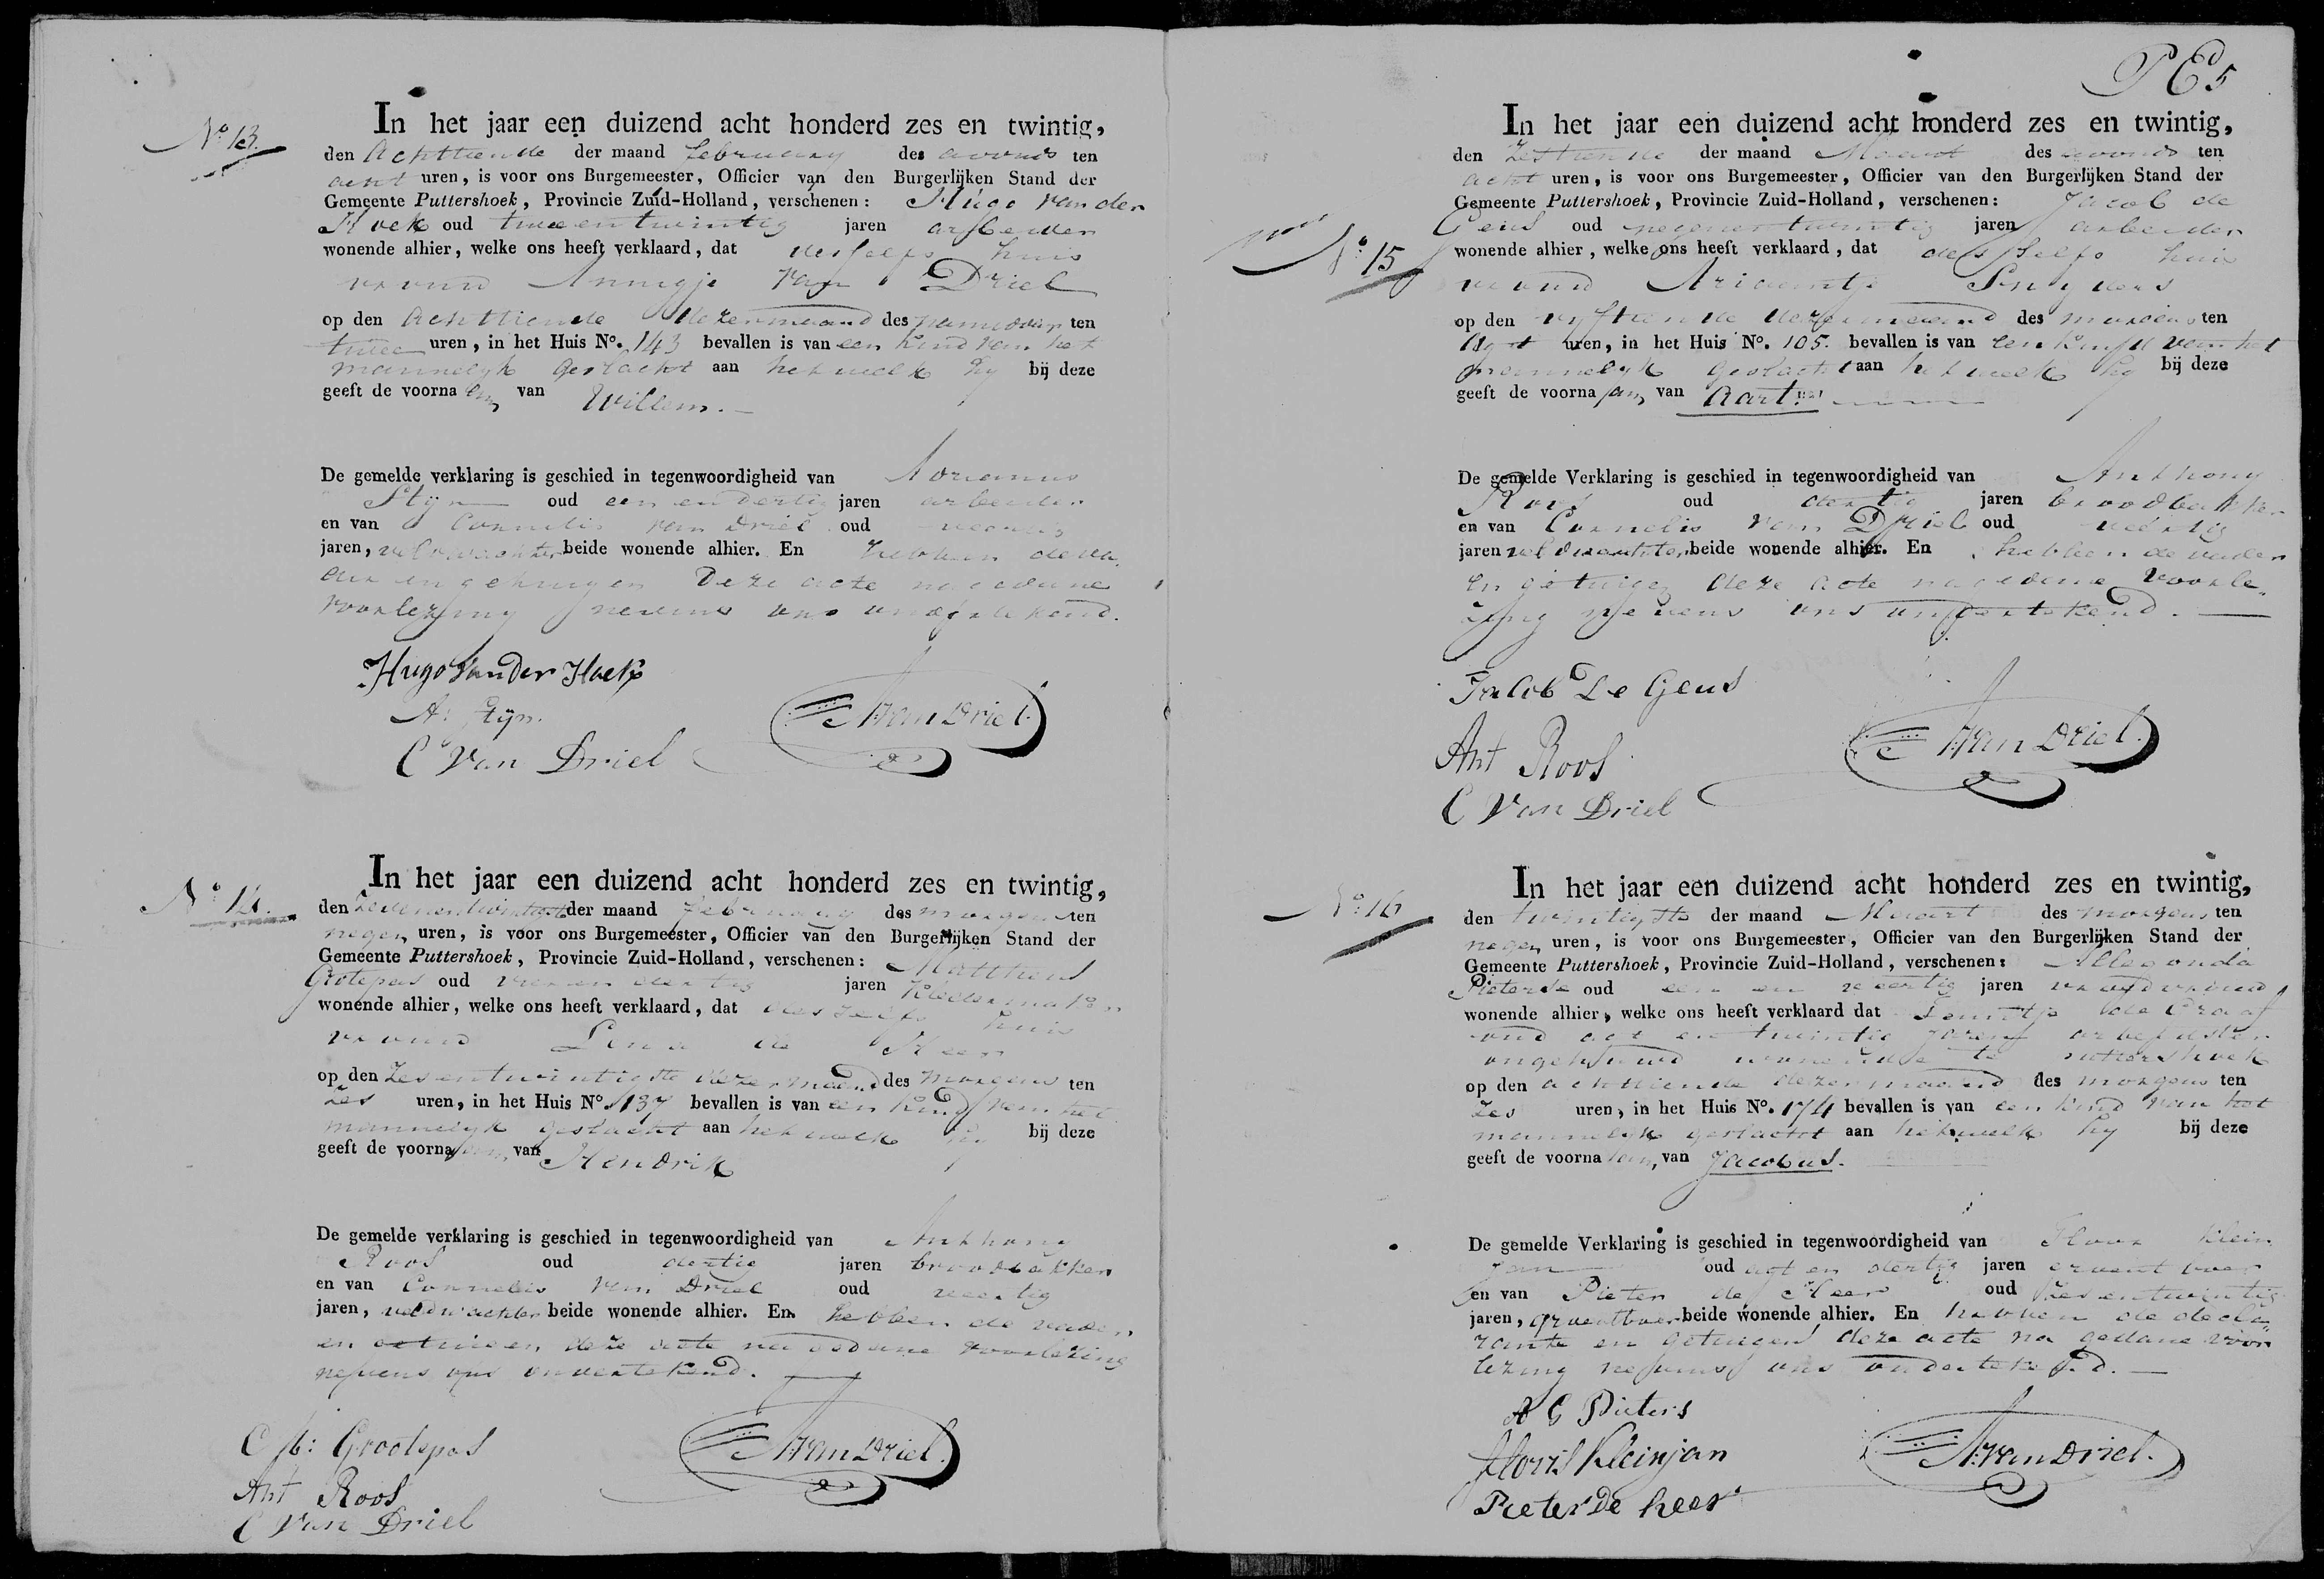 No 13.
In het jaar een duizend acht honderd zes en twintig,
den Achttiende der maand february des avonds ten
acht uren, is voor ons Burgemeester, Officier van den Burgerlijken Stand der
Gemeente Puttershoek, Provincie Zuid-Holland, verschenen: Hugo van der
Hoek oud twee en twintig jaren arbeider
wonende alhier, welke ons heeft verklaard, dat deszelfs huis
vrouw Annigje van Driel
op den Achttiende dezer maand des namiddags ten
twee uren, in het Huis No. 143 bevallen is van een kind van het
mannelyk geslacht aan hetwelk hy bij deze
geeft de voorna van Willem.
De gemelde verklaring is geschied in tegenwoordigheid van Adrianus
Stijn oud een en dertig jaren arbeider
en van Cornelis van Driel oud veertig
jaren, veldwachter beide wonende alhier. En hebben de va
der en getuigen deze acte na gedane
voorlezing nevens ons ondertekend.
Hugo van Der Hoek
A: Stijn.
C Van Driel
A: van Driel.
No 14.
In het jaar een duizend acht honderd zes en twintig,
den Zevenentwintigste der maand february des morgens ten
negen uren, is voor ons Burgemeester, Officier van den Burgerlijken Stand der
Gemeente Puttershoek, Provincie Zuid-Holland, verschenen: Mattheus
Grotepas oud vier en dertig jaren kledermaker
wonende alhier, welke ons heeft verklaard, dat deszelfs huis
vrouw Lena de Heer
op den Zesentwintigste dezer maand des morgens ten
Zes uren, in het Huis No. 137 bevallen is van een kind van het
mannelyk geslacht aan hetwelk hy bij deze
geeft de voorna van Hendrik
De gemelde verklaring is geschied in tegenwoordigheid van Anthony
Roos oud dertig jaren broodbakker
en van Cornelis van Driel oud veertig
jaren, veldwachter beide wonende alhier. En hebben de vader
en getuigen deze acte na gedane voorlezing
nevens ons ondertekend.
Grootepas
Ant Roos
C Van Driel
A: van Driel.
5
No 15
In het jaar een duizend acht honderd zes en twintig,
den Zestiende der maand Maart des avonds ten
acht uren, is voor ons Burgemeester, Officier van den Burgerlijken Stand der
Gemeente Puttershoek, Provincie Zuid-Holland, verschenen: Jacob de
Geus oud negenentwintig jaren arbeider
wonende alhier, welke ons heeft verklaard, dat deszelfs huis
vrouw Ariaantje Snyders
op den vyftiende dezer maand des morgens ten
uren, in het Huis No. 105. bevallen is van een kind van het
mannelyk geslacht aan hetwelk hy bij deze
geeft de voorna van Aart
De gemelde Verklaring is geschied in tegenwoordigheid van Anthony
Roos oud dertig jaren broodbakker
en van Cornelis van Driel oud veertig
jaren veldwachter beide wonende alhier. En hebben de vader
en getuigen deze acte na gedane voorle
zing nevens ons ondertekend.
Jacob De Geus
Ant Roos
C Van Driel
A: van Driel.
No 16
In het jaar een duizend acht honderd zes en twintig,
den twintigste der maand Maart des morgens ten
negen uren, is voor ons Burgemeester, Officier van den Burgerlijken Stand der
Gemeente Puttershoek, Provincie Zuid-Holland, verschenen: Allegonda
Pieterse oud een en veertig jaren vroedvrouw
wonende alhier, welke ons heeft verklaard dat de Graaf
oud agt en twintig jaren arbeidster
ongehuwd wonende te Puttershoek
op den achttiende dezer maand des morgens ten
Zes uren, in het Huis No. 174 bevallen is van een kind van het
mannelyk geslacht aan hetwelk hy bij deze
geeft de voorna van Jacobus.
De gemelde Verklaring is geschied in tegenwoordigheid van Floor Klein
Jan oud agt en dertig jaren
en van Pieter de Heer oud
jaren, beide wonende alhier. En hebben de decla
rante en getuigen deze acte na gedane voor
lezing nevens ons ondertekend.
A G Pieters
Floris Kleinjan
Pieter De heer
A: van Driel.